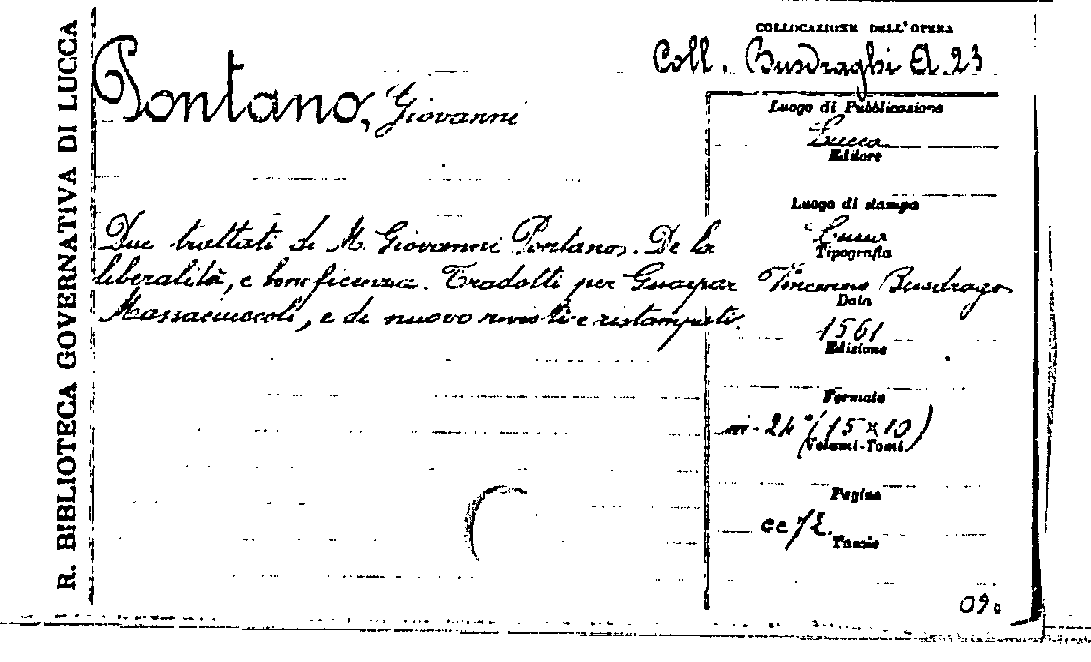 R. BIBLIOTECA GOVERNATIVA DI LUCCA
Pontano, Giovanni
Due trattati di M. Giovanni Pontano. De la
liberalità, e beneficenza. Tradotti per Guaspar
Massaciuccoli, e di nuovo rivisti e ristampati.
COLLOCAZIONE DELL'OPERA
Coll. Busdraghi A.23
Luogo di Pubblicazione
Lucca
Editore
Luogo di stampa
Lucca
Tipografia
Vincenzo Busdrago
Data
1561
Edizione
Formato
in-24° (15×10)
Volumi-Tomi
Pagine
cc 72
Tavole